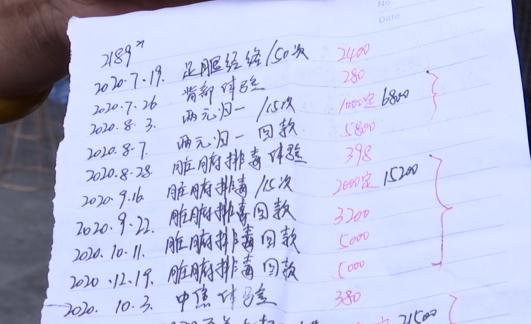 No
Date
2189
2020.7.19. 足腿经络/50次 2400
2020.7.26 背部体验 280
2020.8.3. 两元归一/15次 1000定 6800
2020.8.7. 两元归一回款 5800
2020.8.28 脏腑排毒体验 398
2020.9.16 脏腑排毒/15次 2000定 15200
2020.9.22. 脏腑排毒回款 3200
2020.10.11. 脏腑排毒回款 5000
2020.12.19. 脏腑排毒回款 5000
2020.10.3. 中焦体验 380
21500